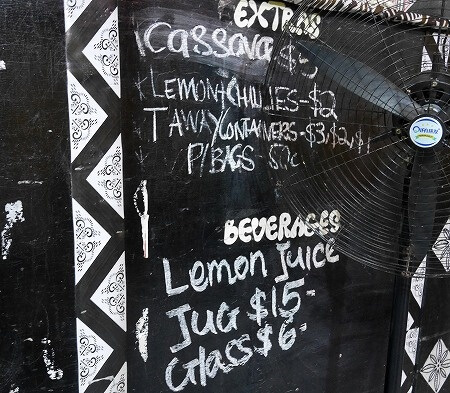 EXTRAS
Cassava $5
LEMON+CHILLIES-$2
TAWAY CONTAINERS-$3,$2,$1
P/BAGS 50c
BEVERAGES
Lemon Juice
Jug $15-
Glass $6-